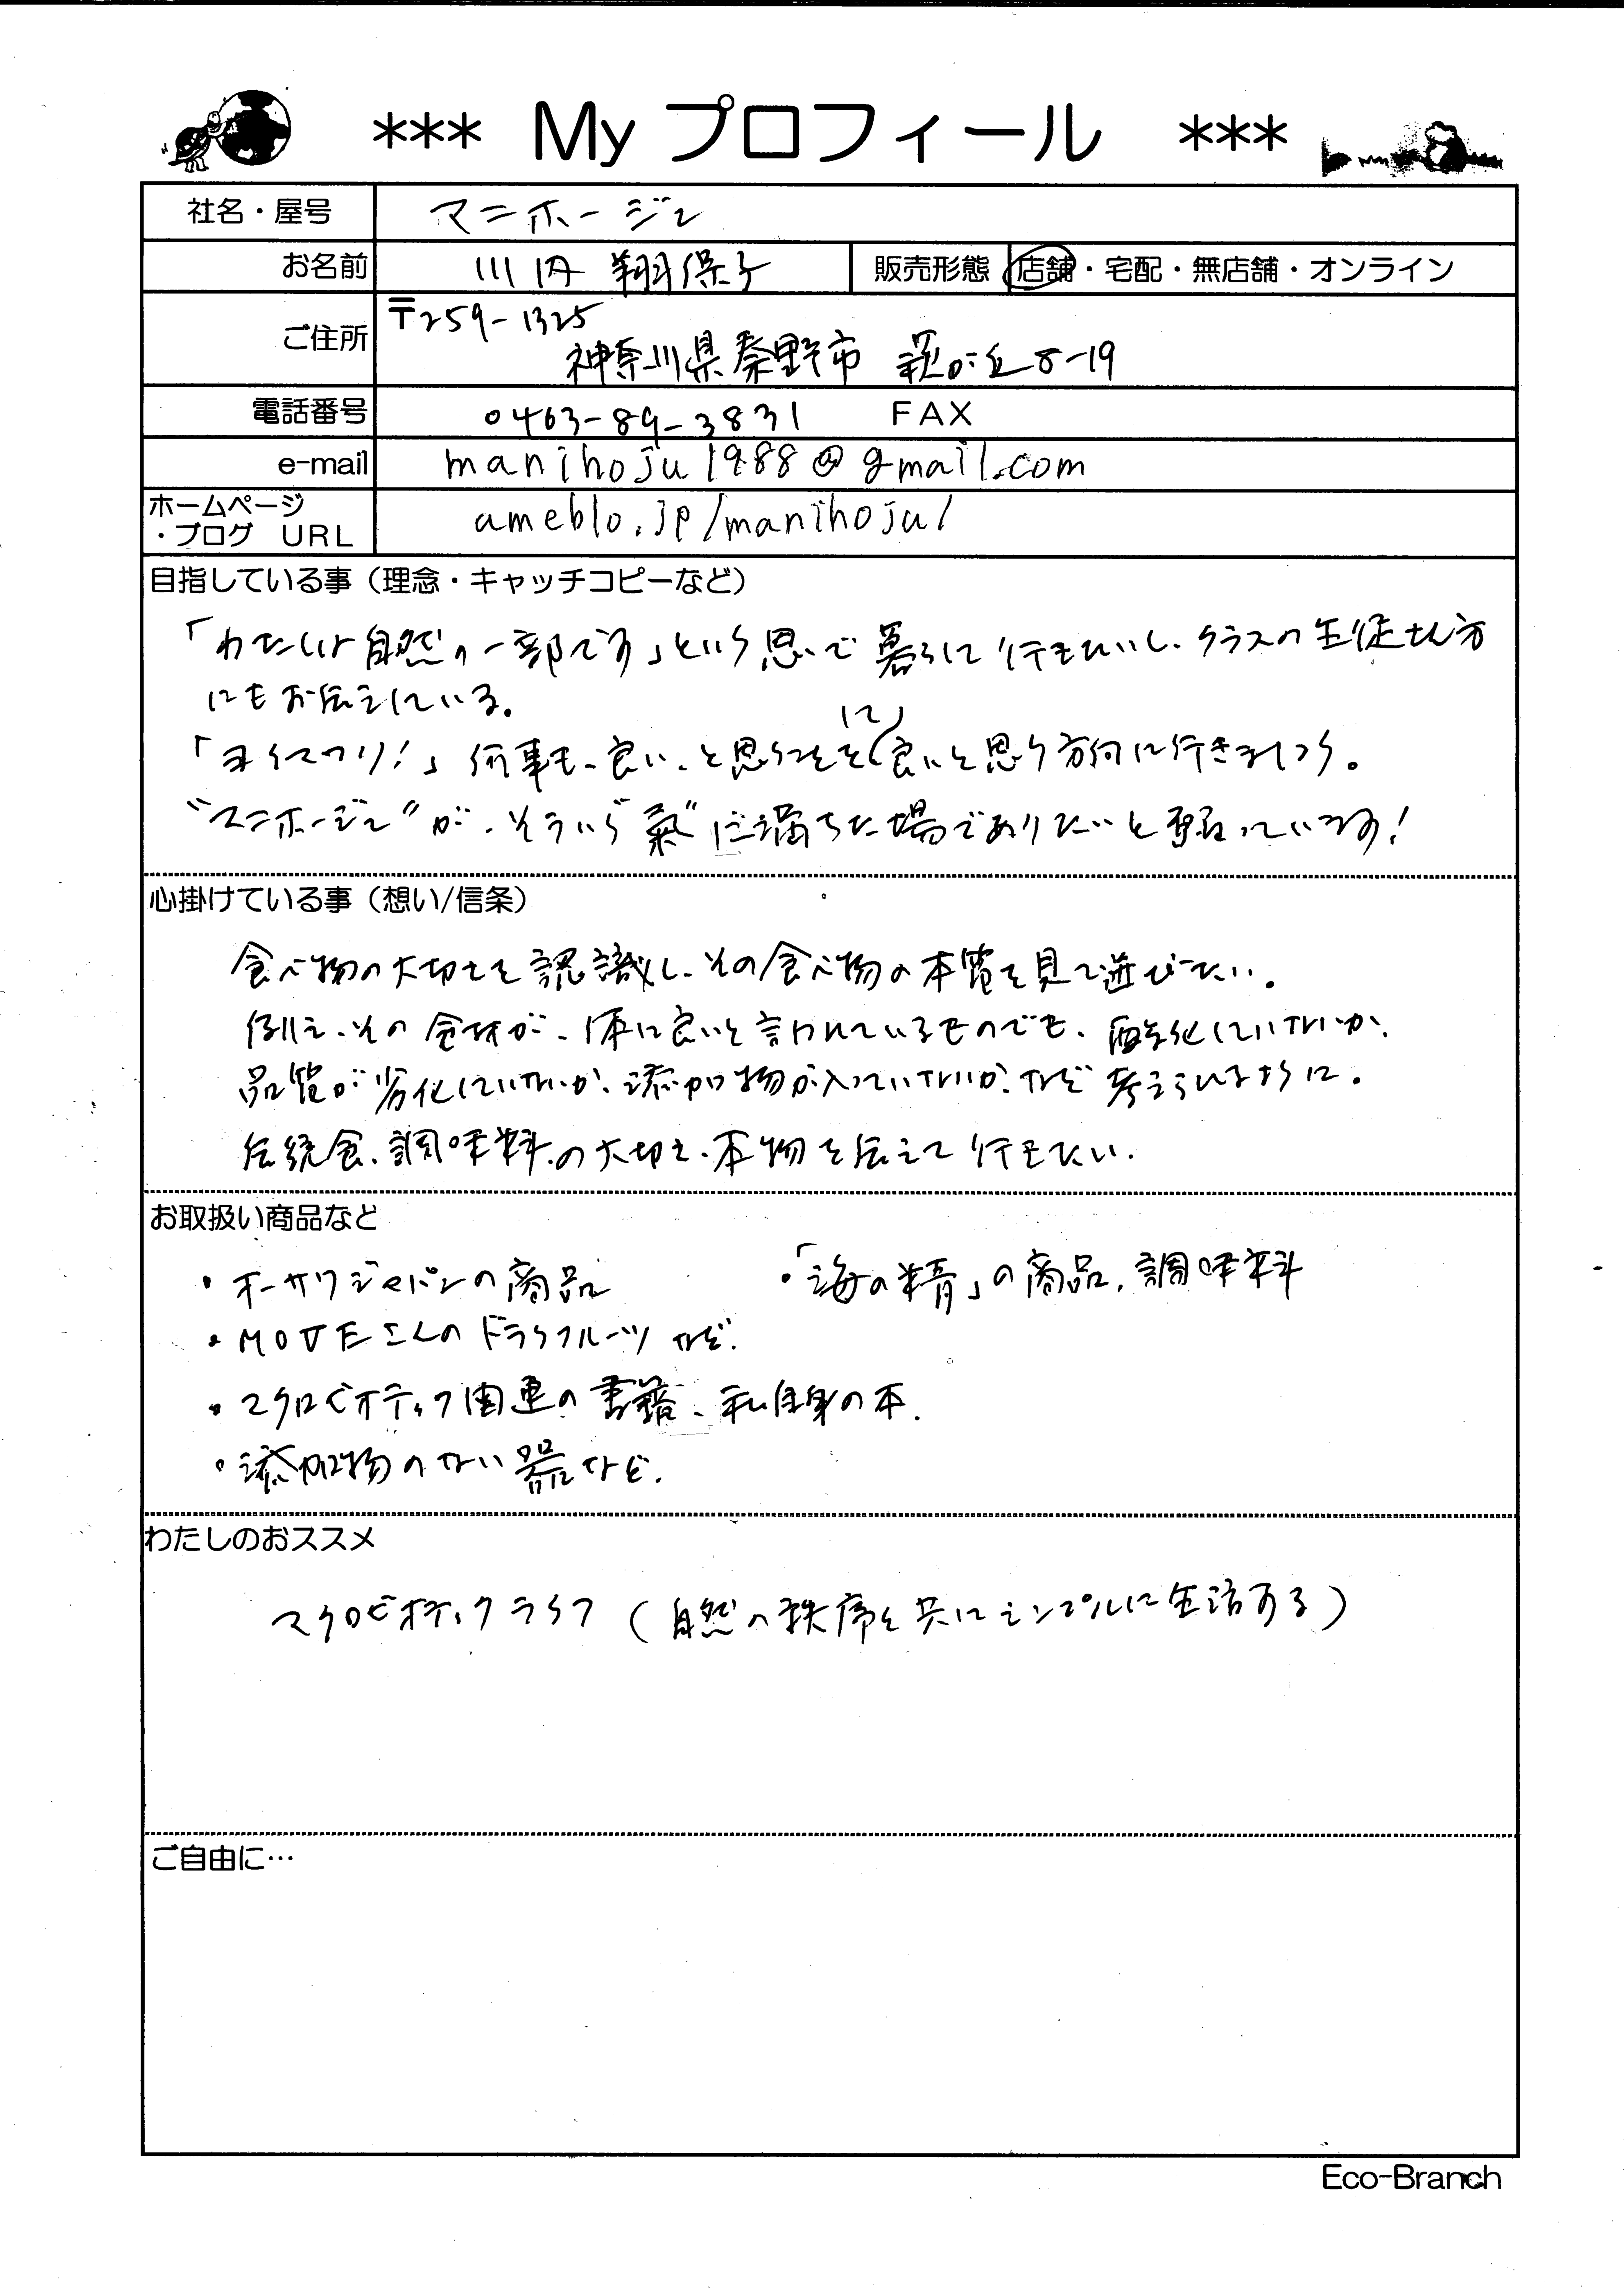 *** My プロフィール ***
社名・屋号 マニホージュ
お名前 川内 翔保子 販売形態 店舗・宅配・無店舗・オンライン
ご住所 〒259-1325
神奈川県秦野市 萩が丘8-19
電話番号 0463-89-3831 FAX
e-mail manihoju1988@gmail.com
ホームページ
・ブログ URL ameblo.jp/manihoju/
目指している事（理念・キャッチコピーなど）
「わたしは自然の一部です」という思いで暮らして行きたいし、クラスの生徒さん方
にもお伝えしている。
「ヨクナリ！」何事も、良い、と思うことをして、良いと思う方向に行きましょう。
“マニホージュ”が、そういう“氣”に満ちた場でありたいと願っています！
心掛けている事（想い/信条）
食べ物の大切さを認識し、その食べ物の本質を見て選びたい。
例え、その食材が、体に良いと言われているものでも、酸化していないか、
品質が劣化していないか、添加物が入っていないか、など考えられるように。
伝統食、調味料の大切さ、本物を伝えて行きたい。
お取扱い商品など
・オーサワジャパンの商品 ・「海の精」の商品、調味料
・MOVEさんのドライフルーツなど。
・マクロビオティック関連の書籍、私自身の本。
・添加物のない器など。
わたしのおススメ
マクロビオティックライフ（自然の秩序と共にシンプルに生活する）
ご自由に…
Eco-Branch